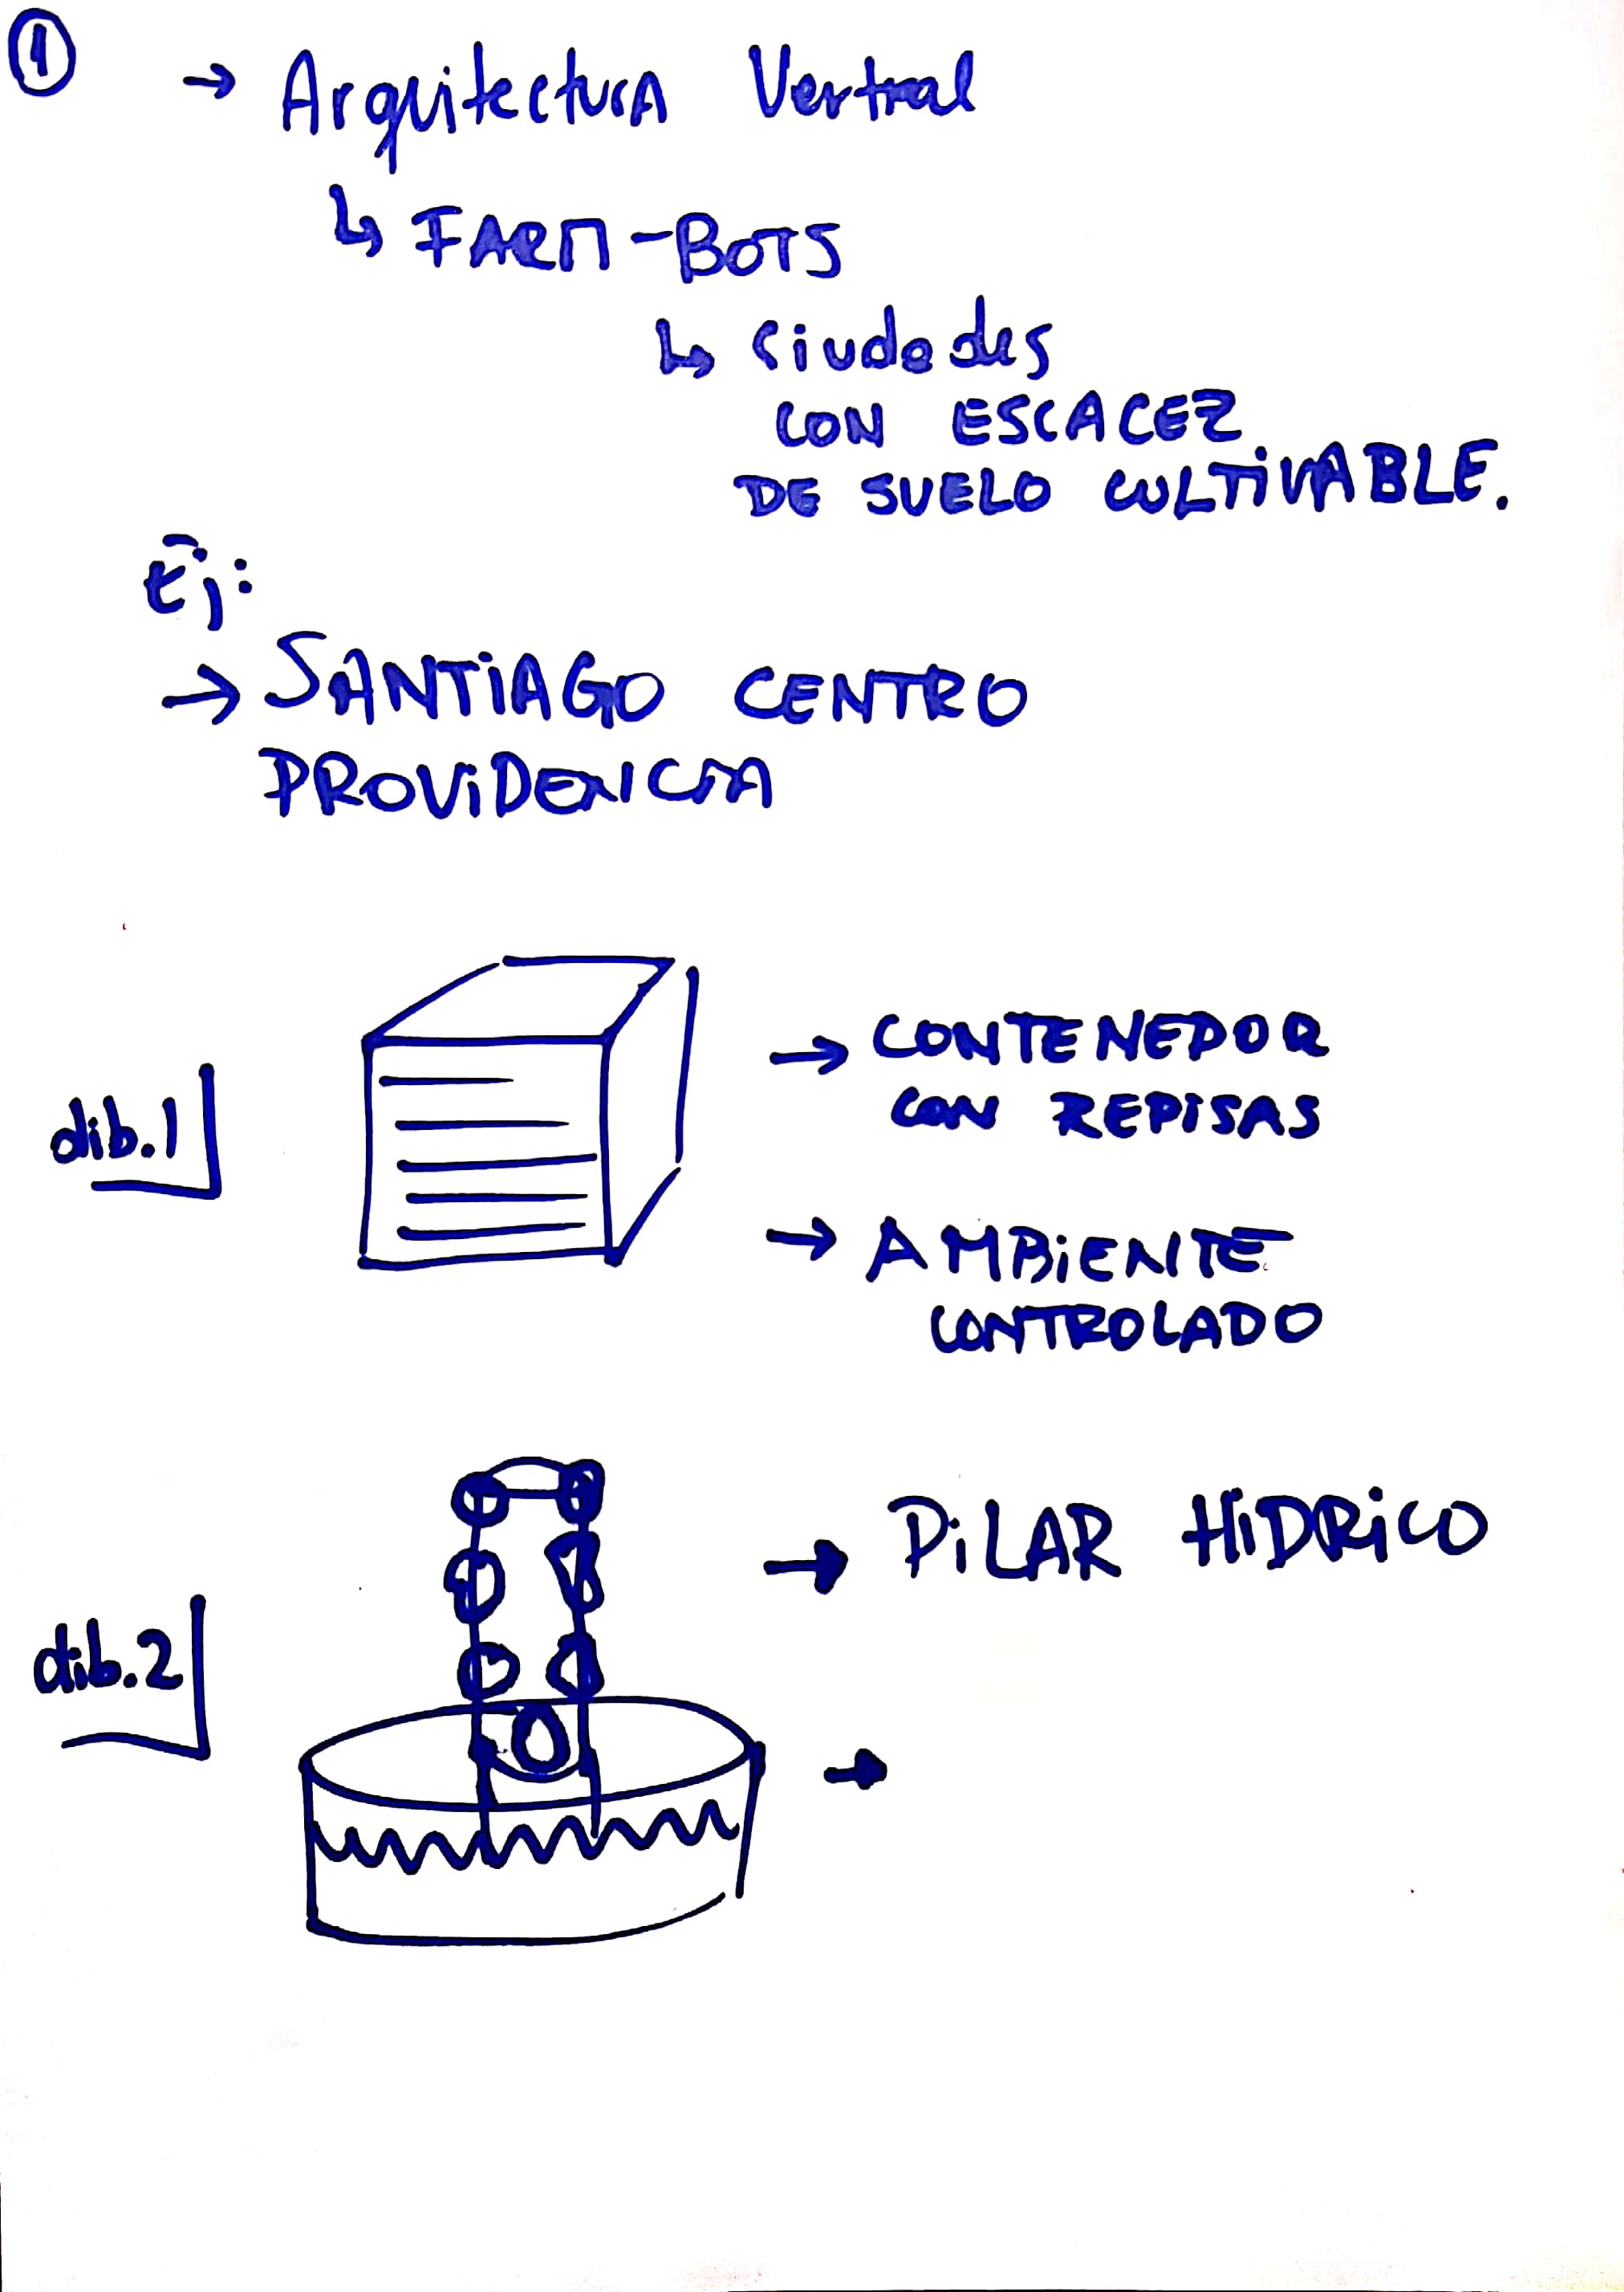 1
→ Arquitectura Vertical
↳ FARM-BOTS
↳ Ciudades
CON ESCACEZ
DE SUELO CULTIVABLE.
Ej:
→ SANTIAGO CENTRO
PROVIDENCIA
dib.1
→ CONTENEDOR
CON REPISAS
→ AMBIENTE
CONTROLADO
dib.2
→ PILAR HIDRICO
→